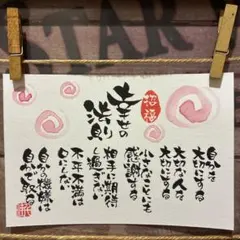 招福
幸せの
渦巻
自分を
大切にする
大切な人を
大切にする
小さなことにも
感謝する
相手に期待
し過ぎない
不平不満は
口にしない
自分の機嫌は
自分で取る